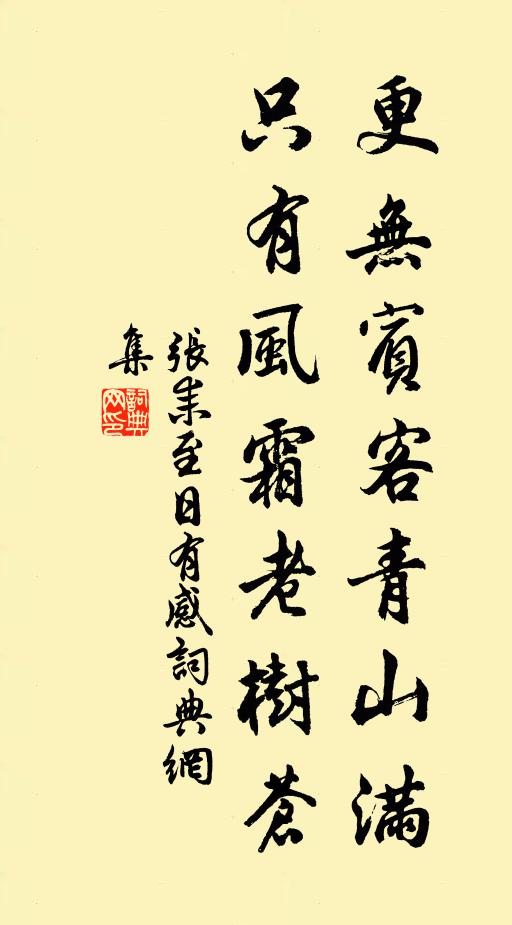 更無賓客青山滿
只有風霜老樹蒼
張耒至日有感詞典網
集
詞典
网印